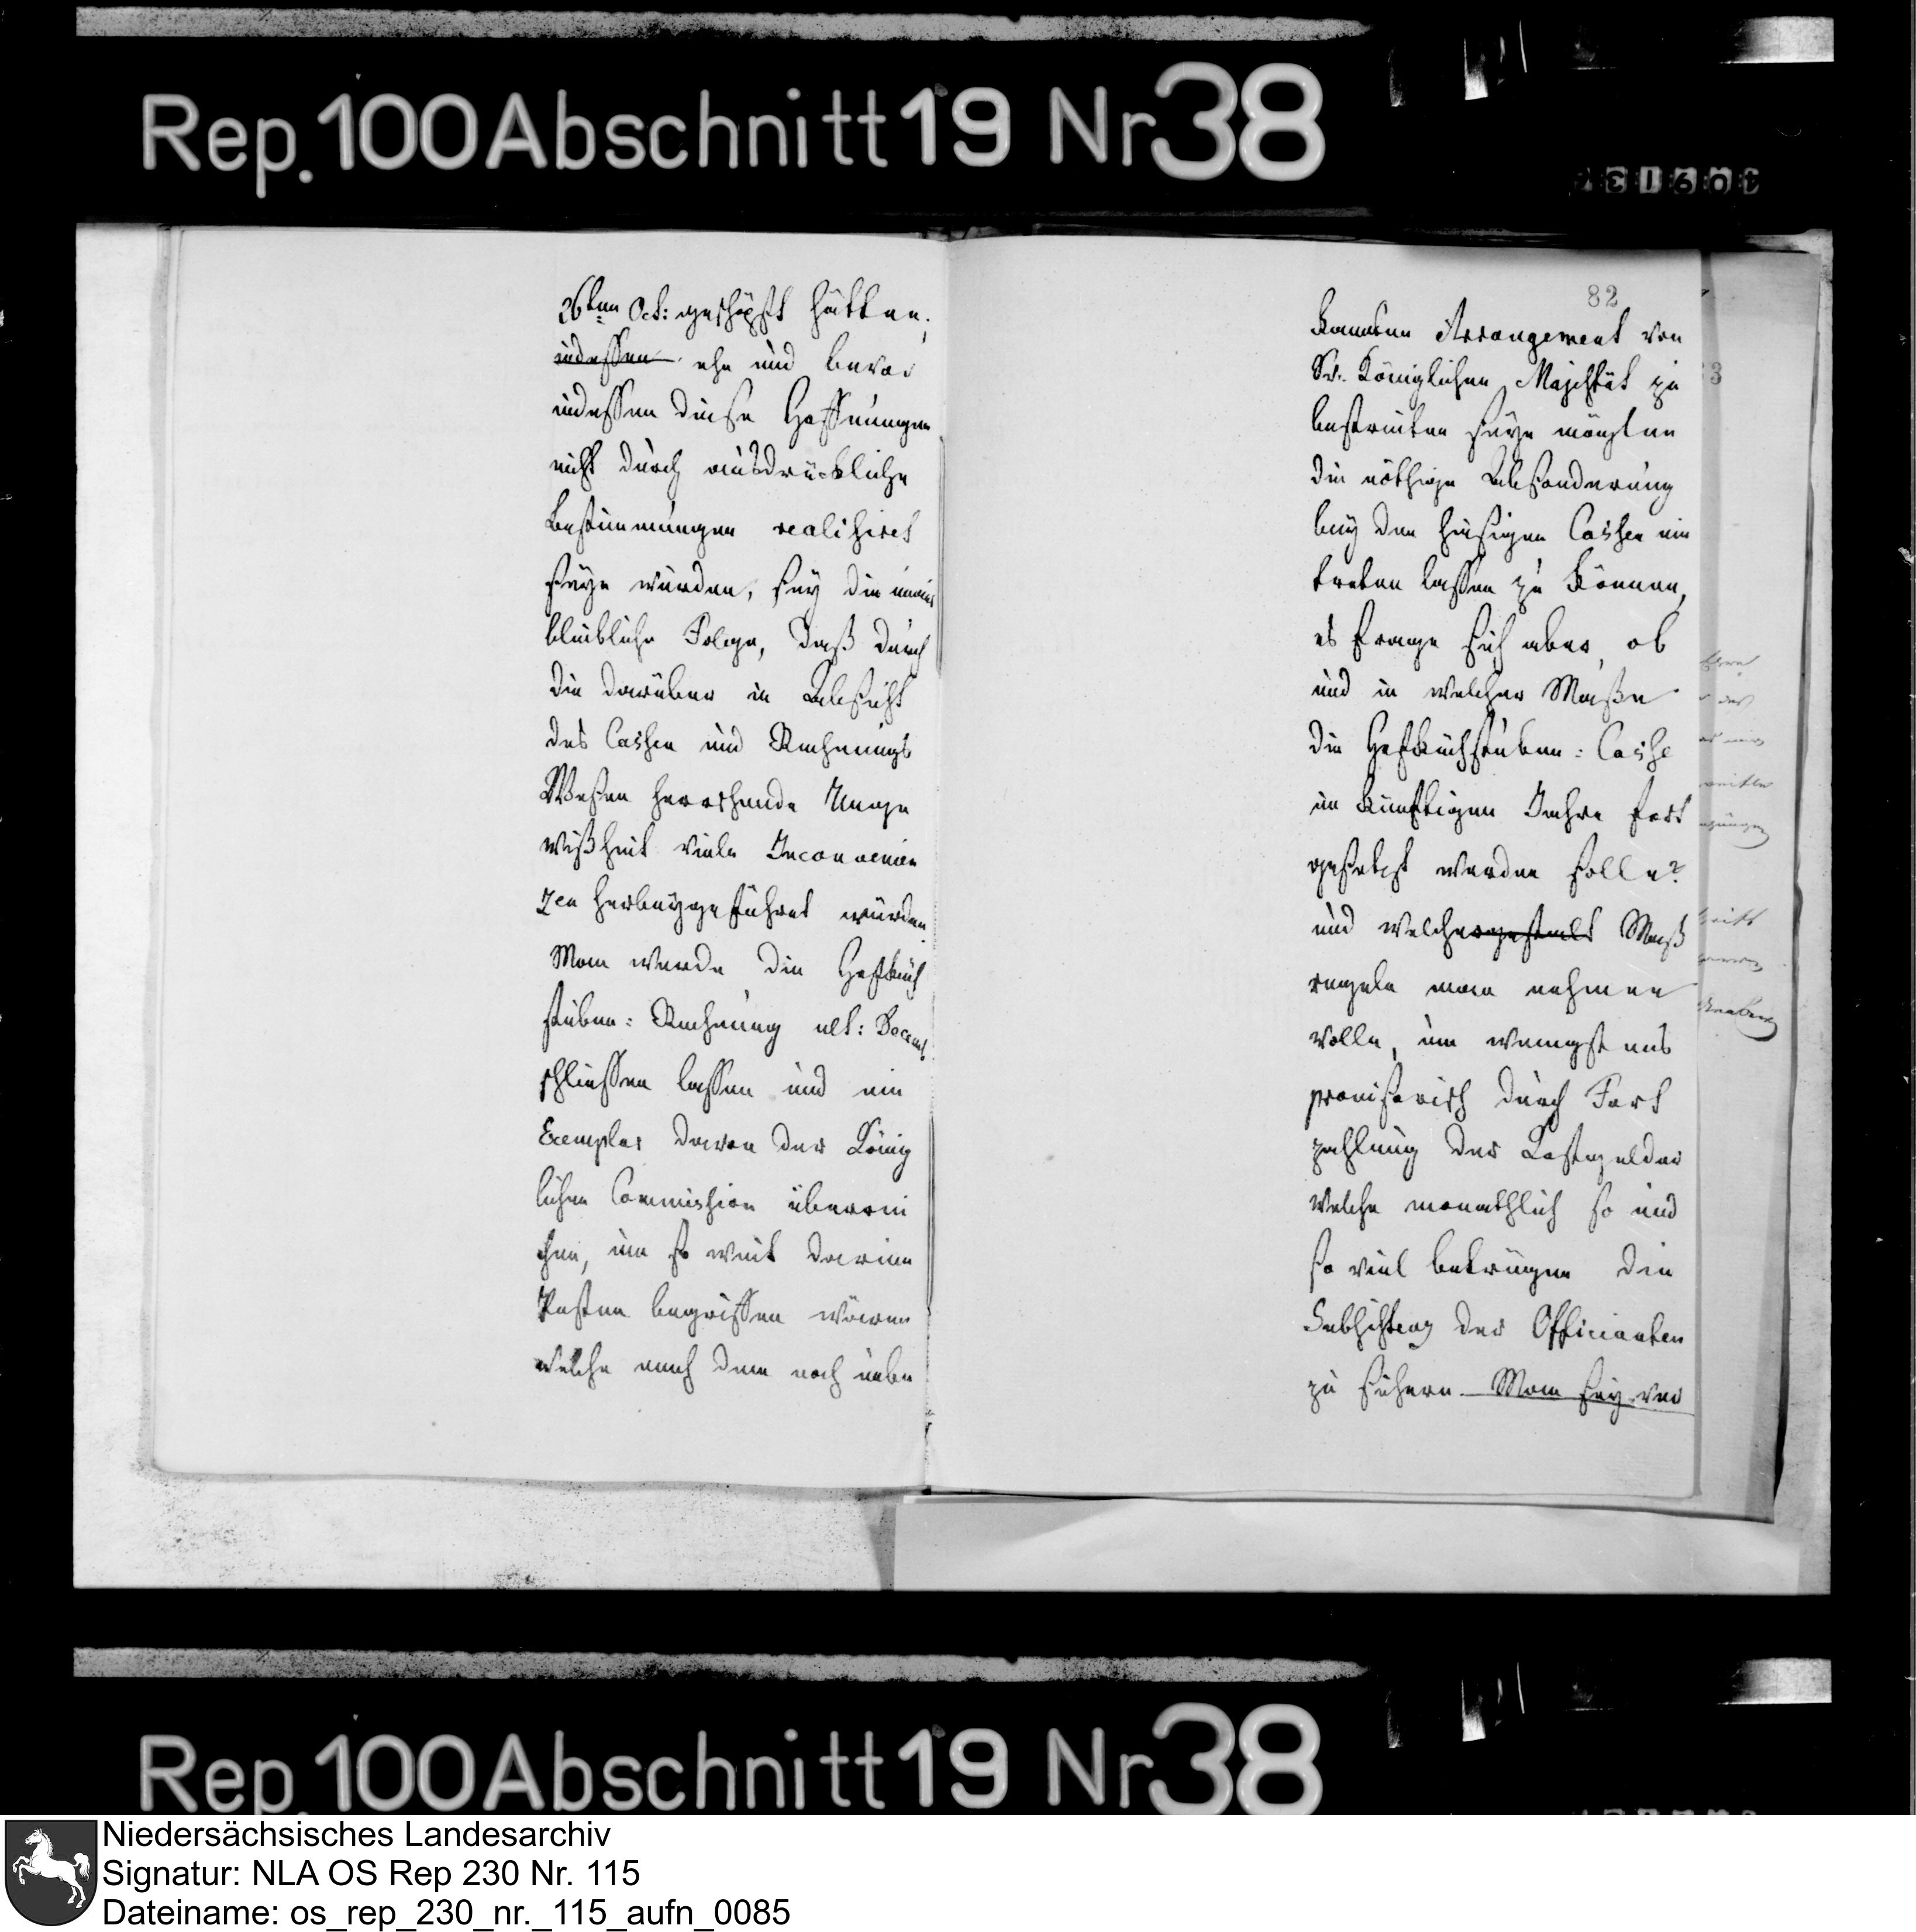 Rep. 100 Abschnitt 19 Nr 38
26ten Oct: geschöpft hätten;
indessen ehe und bevor
indessen diese Hoffnungen
nicht durch ausdrückliche
Bestimmungen realisiret
seyn würden, sey die unaus
bleibliche Folge, daß durch
die darüber in Absicht
des Cassen und Rechnungs
Wesen herrschende Unge
wißheit viele Inconvenien
zen herbeygeführet würden.
Man werde die Hofküch
stuben: Rechnung ult: Decemb
schliessen lassen und ein
Exemplar davon der König
lichen Commission überrei
chen, um so weit darinn
Posten begriffen wären
welche nach dem noch unbe
82
kannten Arrangement von
Sr. Königlichen Majestät zu
bestreiten seyn mögten
die nöthige Absonderung
bey den hiesigen Cassen ein
treten lassen zu können,
es frage sich aber, ob
und in welcher Maße
die Hofküchstuben: Casse
im künftigen Jahre fort
gesetzt werden solle?
und welchergestalt Maß
regeln man nehmen
wolle, um wenigstens
provisorisch durch Fort
zahlung der Kostgelder
welche monathlich so und
so viel betrügen die
Subsistenz der Officianten
zu sichern. Man sey ver
Rep. 100 Abschnitt 19 Nr 38
Niedersächsisches Landesarchiv
Signatur: NLA OS Rep 230 Nr. 115
Dateiname: os_rep_230_nr._115_aufn_0085